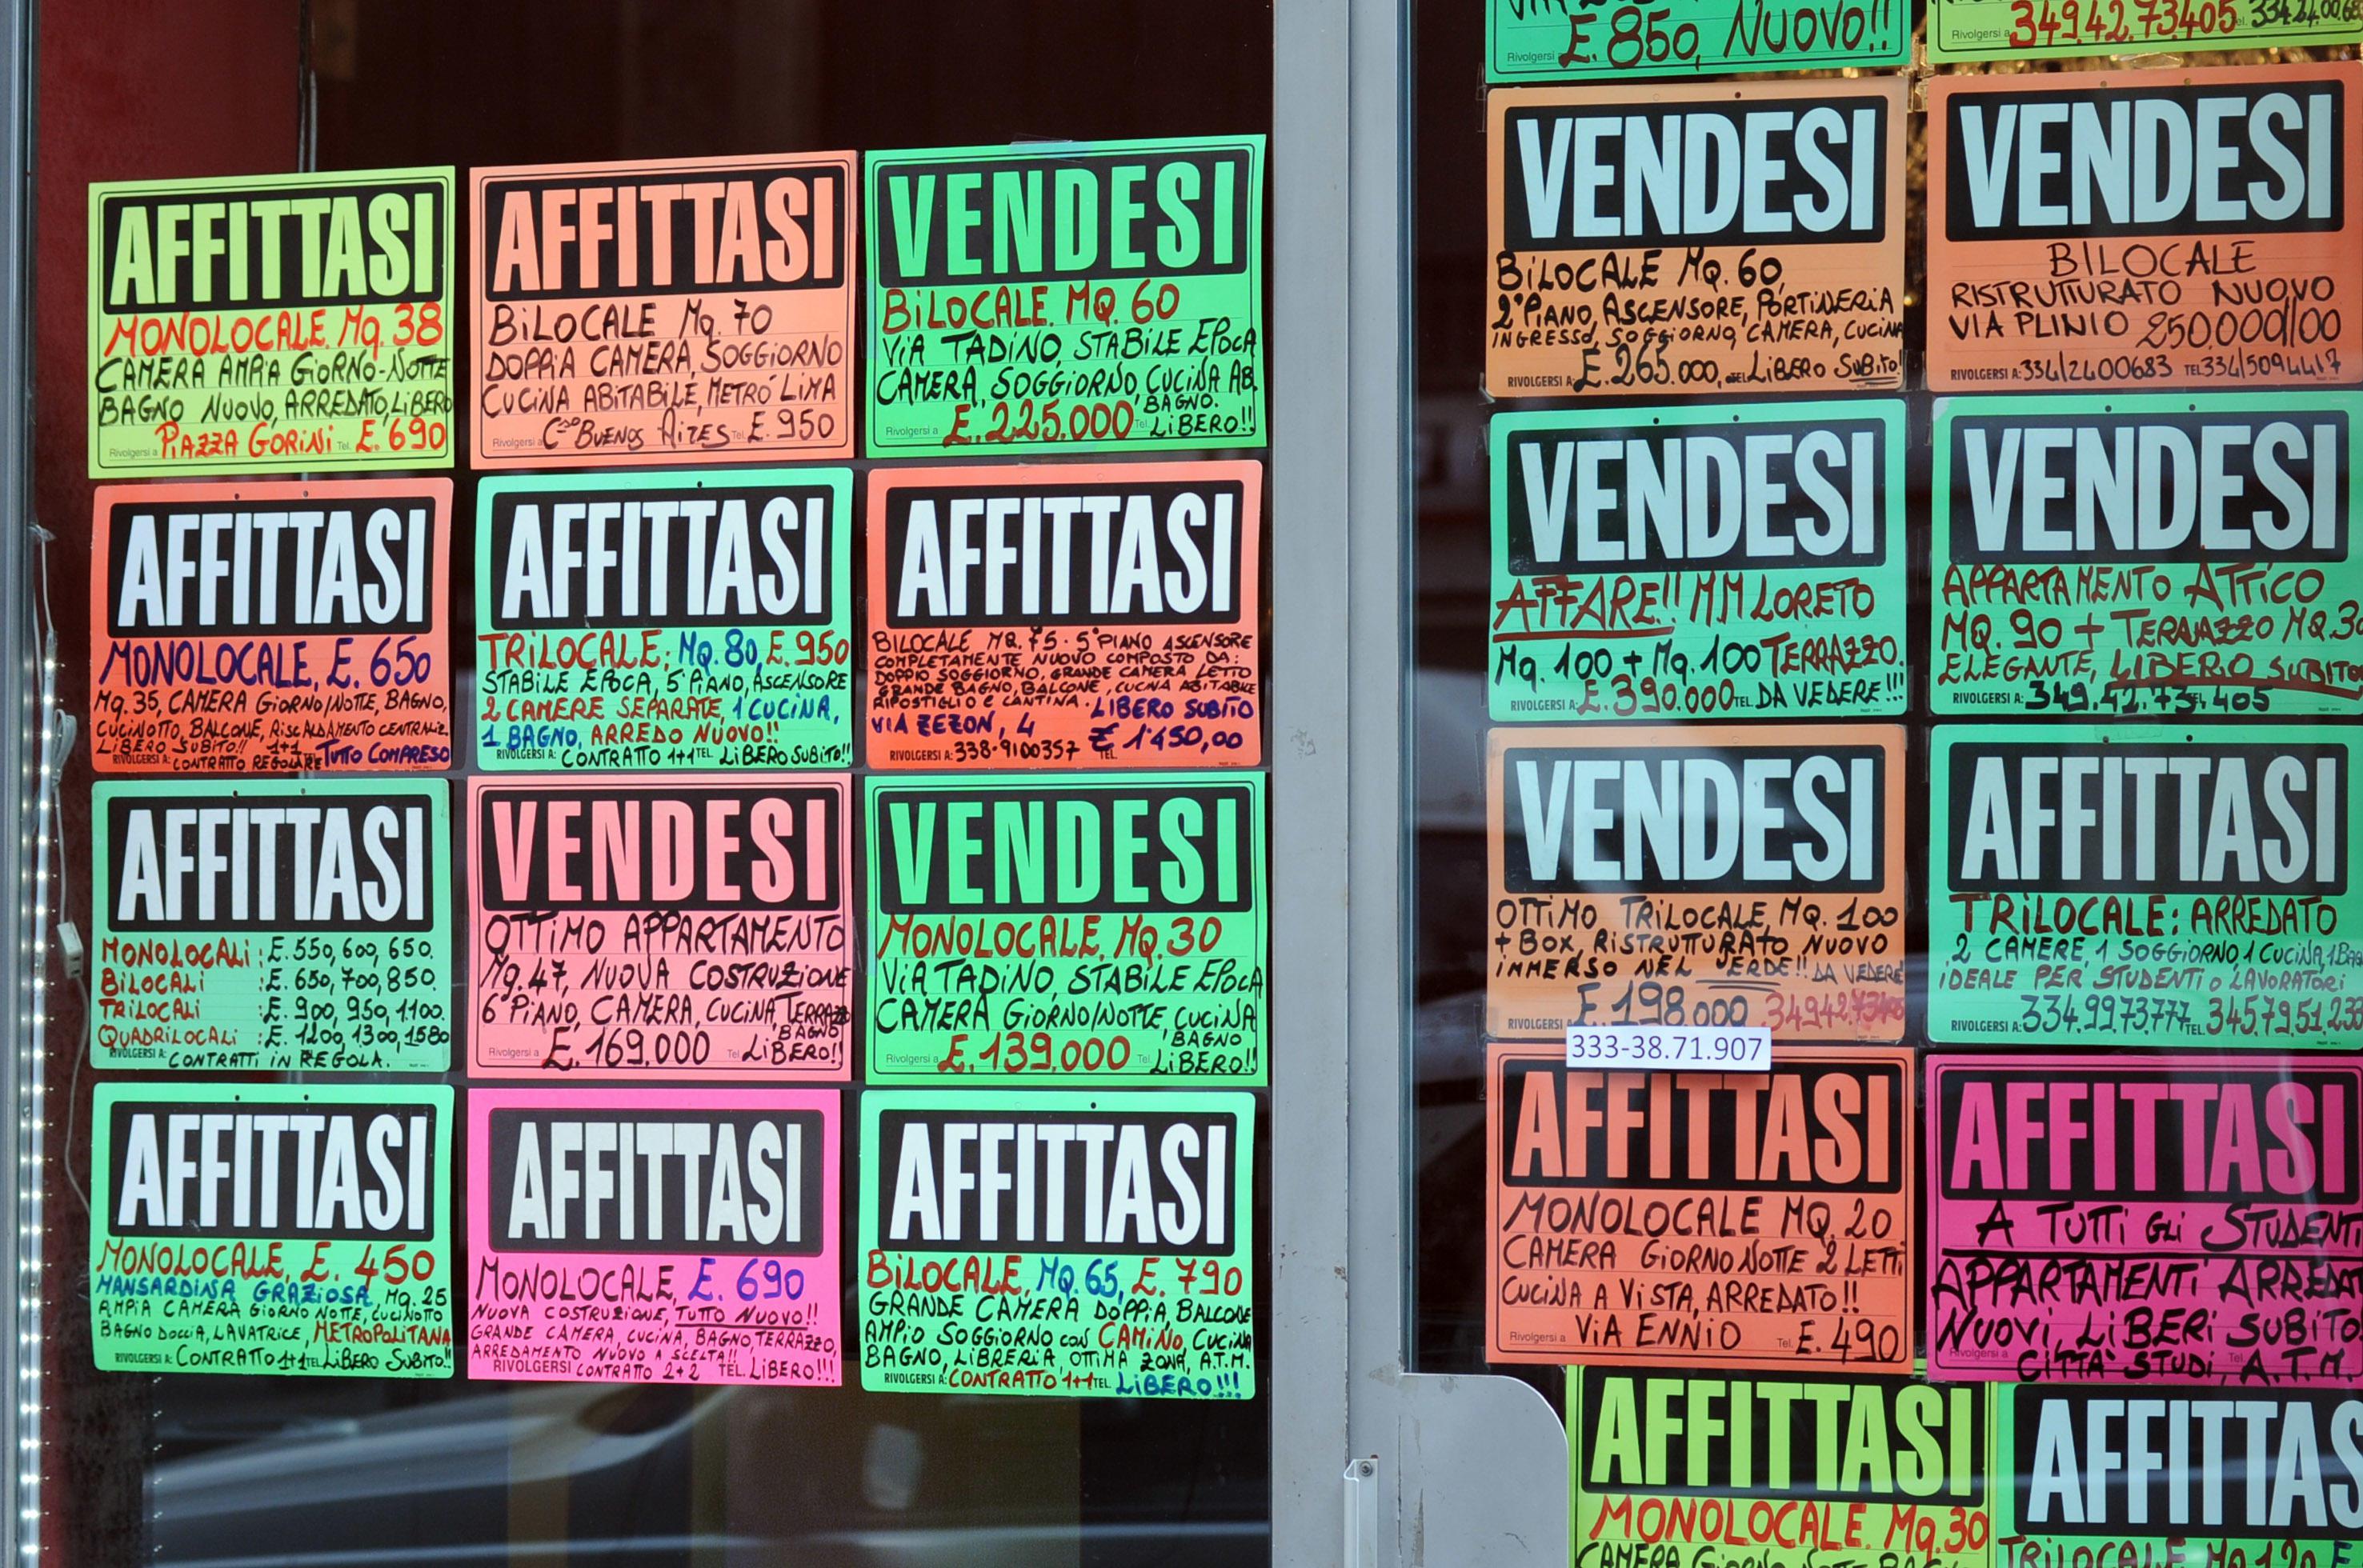 AFFITTASI
MONOLOCALE. Mq. 38
CAMERA AMPIA GIORNO-NOTTE
BAGNO NUOVO, ARREDATO, LIBERO
Rivolgersi a PIAZZA GORINI Tel. E. 690
AFFITTASI
BILOCALE Mq. 70
DOPPIA CAMERA, SOGGIORNO
CUCINA ABITABILE, METRÓ LIMA
Rivolgersi a C.so BUENOS AIRES Tel. E. 950
VENDESI
BILOCALE. MQ. 60
VIA TADINO, STABILE EPOCA
CAMERA, SOGGIORNO, CUCINA AB.
BAGNO.
Rivolgersi a E. 225.000 Tel. LIBERO!!
AFFITTASI
MONOLOCALE, E. 650
Mq. 35, CAMERA GIORNO/NOTTE, BAGNO,
CUCINOTTO, BALCONE, RISCALDAMENTO CENTRALIZ.
LIBERO SUBITO!! 1+1
RIVOLGERSI A: CONTRATTO REGOLARE TUTTO COMPRESO
AFFITTASI
TRILOCALE: MQ. 80, E. 950
STABILE EPOCA, 5° PIANO, ASCENSORE
2 CAMERE SEPARATE, 1 CUCINA,
1 BAGNO, ARREDO NUOVO!!
RIVOLGERSI A: CONTRATTO 1+1 TEL. LIBERO SUBITO!!
AFFITTASI
BILOCALE MQ. 75 - 5° PIANO ASCENSORE
COMPLETAMENTE NUOVO COMPOSTO DA:
DOPPIO SOGGIORNO, GRANDE CAMERA LETTO
GRANDE BAGNO, BALCONE, CUCINA ABITABILE
RIPOSTIGLIO E CANTINA. LIBERO SUBITO
VIA ZEZON, 4 E 1'450,00
RIVOLGERSI A: 338-9100357 TEL.
AFFITTASI
MONOLOCALI: E. 550, 600, 650.
BILOCALI :E. 650, 700, 850.
TRILOCALI :E. 900, 950, 1.100.
QUADRILOCALI :E. 1200, 1300, 1580
RIVOLGERSI A: CONTRATTI IN REGOLA.
VENDESI
OTTIMO APPARTAMENTO
Mq. 47, NUOVA COSTRUZIONE
6° PIANO, CAMERA, CUCINA, TERRAZZO
BAGNO
Rivolgersi a E. 169.000 Tel. LIBERO!!
VENDESI
MONOLOCALE. MQ. 30
VIA TADINO, STABILE EPOCA
CAMERA GIORNO/NOTTE, CUCINA
BAGNO
Rivolgersi a E. 139.000 Tel. LIBERO!!
AFFITTASI
MONOLOCALE, E. 450
MANSARDINA GRAZIOSA, MQ. 25
AMPIA CAMERA GIORNO NOTTE, CUCINOTTO
BAGNO DOCCIA, LAVATRICE, METROPOLITANA
RIVOLGERSI A: CONTRATTO 1+1 TEL. LIBERO SUBITO!!
AFFITTASI
MONOLOCALE, E. 690
NUOVA COSTRUZIONE, TUTTO NUOVO!!
GRANDE CAMERA, CUCINA, BAGNO, TERRAZZO,
ARREDAMENTO NUOVO A SCELTA!!
RIVOLGERSI CONTRATTO 2+2 TEL. LIBERO!!!
AFFITTASI
BILOCALE, MQ. 65, E. 790
GRANDE CAMERA DOPPIA, BALCONE
AMPIO SOGGIORNO CON CAMINO, CUCINA
BAGNO, LIBRERIA, OTTIMA ZONA, A.T.M.
RIVOLGERSI A: CONTRATTO 1+1 TEL. LIBERO!!!
Rivolgersi E. 850, NUOVO!!
Rivolgersi a 349.42.73405 Tel. 334.24.00.68
VENDESI
BILOCALE MQ. 60,
2° PIANO, ASCENSORE, PORTINERIA
INGRESSO, SOGGIORNO, CAMERA, CUCINA
RIVOLGERSI A: E. 265.000, TEL. LIBERO SUBITO!
VENDESI
BILOCALE
RISTRUTTURATO NUOVO
VIA PLINIO 250.000//00
RIVOLGERSI A: 334/2400683 TEL 334/5094417
VENDESI
AFFARE!! MM LORETO
Mq. 100 + Mq. 100 TERRAZZO.
RIVOLGERSI A: E. 390.000 TEL. DA VEDERE!!!
VENDESI
APPARTAMENTO ATTICO
MQ. 90 + TERRAZZO MQ. 30
ELEGANTE, LIBERO SUBITO
RIVOLGERSI A: 349.42.73.405
VENDESI
OTTIMO TRILOCALE, MQ. 100
+ BOX, RISTRUTTURATO NUOVO
IMMERSO NEL VERDE!! DA VEDERE
RIVOLGERSI E. 198.000 34942.73405
333-38.71.907
AFFITTASI
TRILOCALE: ARREDATO
2 CAMERE, 1 SOGGIORNO, 1 CUCINA, 1 BAG
IDEALE PER STUDENTI O LAVORATORI
RIVOLGERSI A: 334.9973777 TEL. 345.79.51.238
AFFITTASI
MONOLOCALE MQ. 20
CAMERA GIORNO NOTTE 2 LETTI
CUCINA A VISTA, ARREDATO!!
Rivolgersi a VIA ENNIO Tel. E. 490
AFFITTASI
A TUTTI GLI STUDENTI
APPARTAMENTI ARREDAT
NUOVI, LIBERI SUBITO
Rivolgersi a CITTÀ STUDI, Tel. A.T.M.
AFFITTASI
MONOLOCALE. Mq. 30
CAMERA GIORNO NOTTE BAG
AFFITTAS
TRILOCALE MQ 120 E